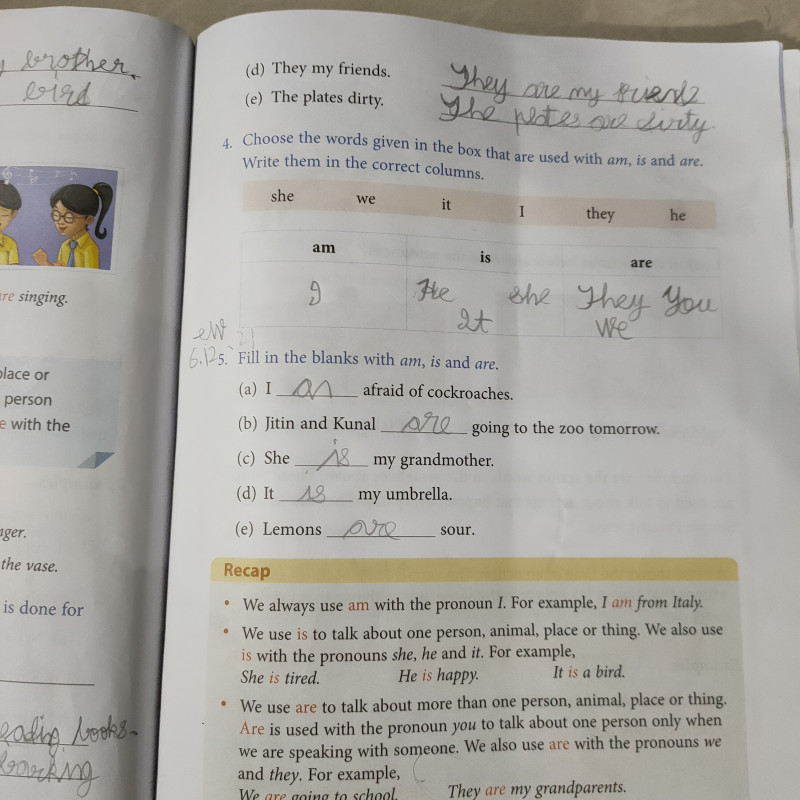 y brother.
bird
re singing.
place or
person
e with the
nger.
the vase.
is done for
eading books-
barking
(d) They my friends. They are my friends
(e) The plates dirty. The plates are dirty.
4. Choose the words given in the box that are used with am, is and are.
Write them in the correct columns.
she we it I they he
am is are
I He she They You
It We
6.12
5. Fill in the blanks with am, is and are.
(a) I am afraid of cockroaches.
(b) Jitin and Kunal are going to the zoo tomorrow.
(c) She is my grandmother.
(d) It is my umbrella.
(e) Lemons are sour.
Recap
• We always use am with the pronoun I. For example, I am from Italy.
• We use is to talk about one person, animal, place or thing. We also use
is with the pronouns she, he and it. For example,
She is tired. He is happy. It is a bird.
• We use are to talk about more than one person, animal, place or thing.
Are is used with the pronoun you to talk about one person only when
we are speaking with someone. We also use are with the pronouns we
and they. For example,
We are going to school. They are my grandparents.